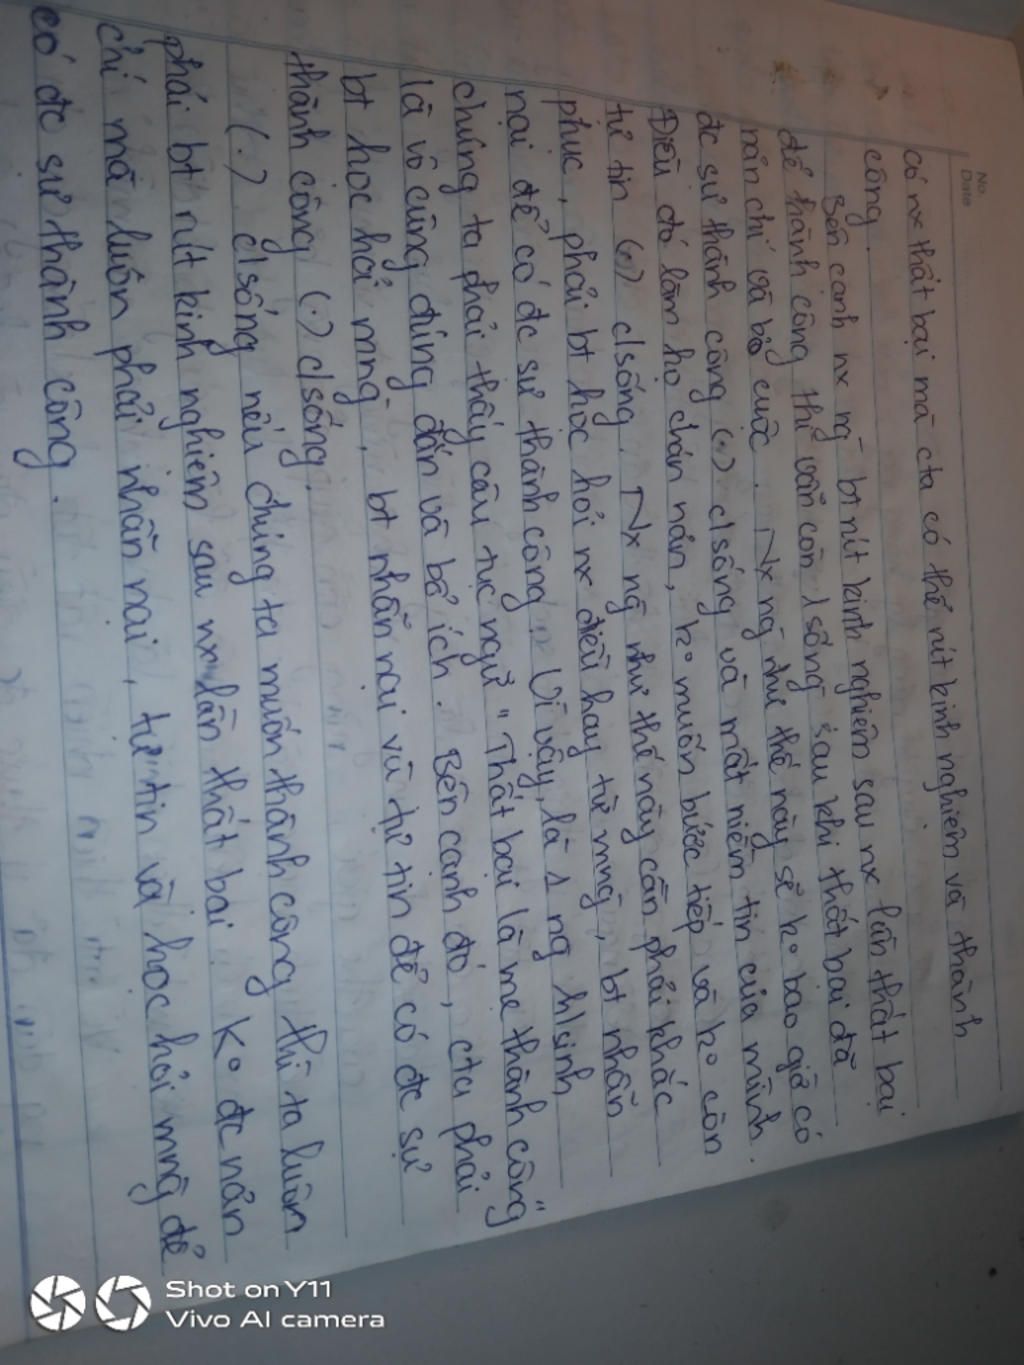 No.
Date
có nx thất bại mà cta có thể rút kinh nghiệm và thành
công.
Bên cạnh nx ng bt rút kinh nghiệm sau nx lần thất bại
để thành công thì vẫn còn 1 số ng sau khi thất bại đã
nản chí và bỏ cuộc. Nx ng như thế này sẽ ko bao giờ có
đc sự thành công (.) c/sống và mất niềm tin của mình.
Điều đó làm họ chán nản, ko muốn bước tiếp và ko còn
tự tin (.) c/sống. Nx ng như thế này cần phải khắc
phục, phải bt học hỏi nx điều hay từ mng, bt nhẫn
nại để có đc sự thành công. Vì vậy, là 1 ng h/sinh
chúng ta phải thấy câu tục ngữ "Thất bại là mẹ thành công"
là vô cùng đúng đắn và bổ ích. Bên cạnh đó, cta phải
bt học hỏi mng, bt nhẫn nại và tự tin để có đc sự
thành công (.) c/sống.
(.) c/sống nếu chúng ta muốn thành công thì ta luôn
phải bt rút kinh nghiệm sau nx lần thất bại. Ko đc nản
chí mà luôn phải nhẫn nại, tự tin và học hỏi mng để
có đc sự thành công.
Shot on Y11
Vivo AI camera